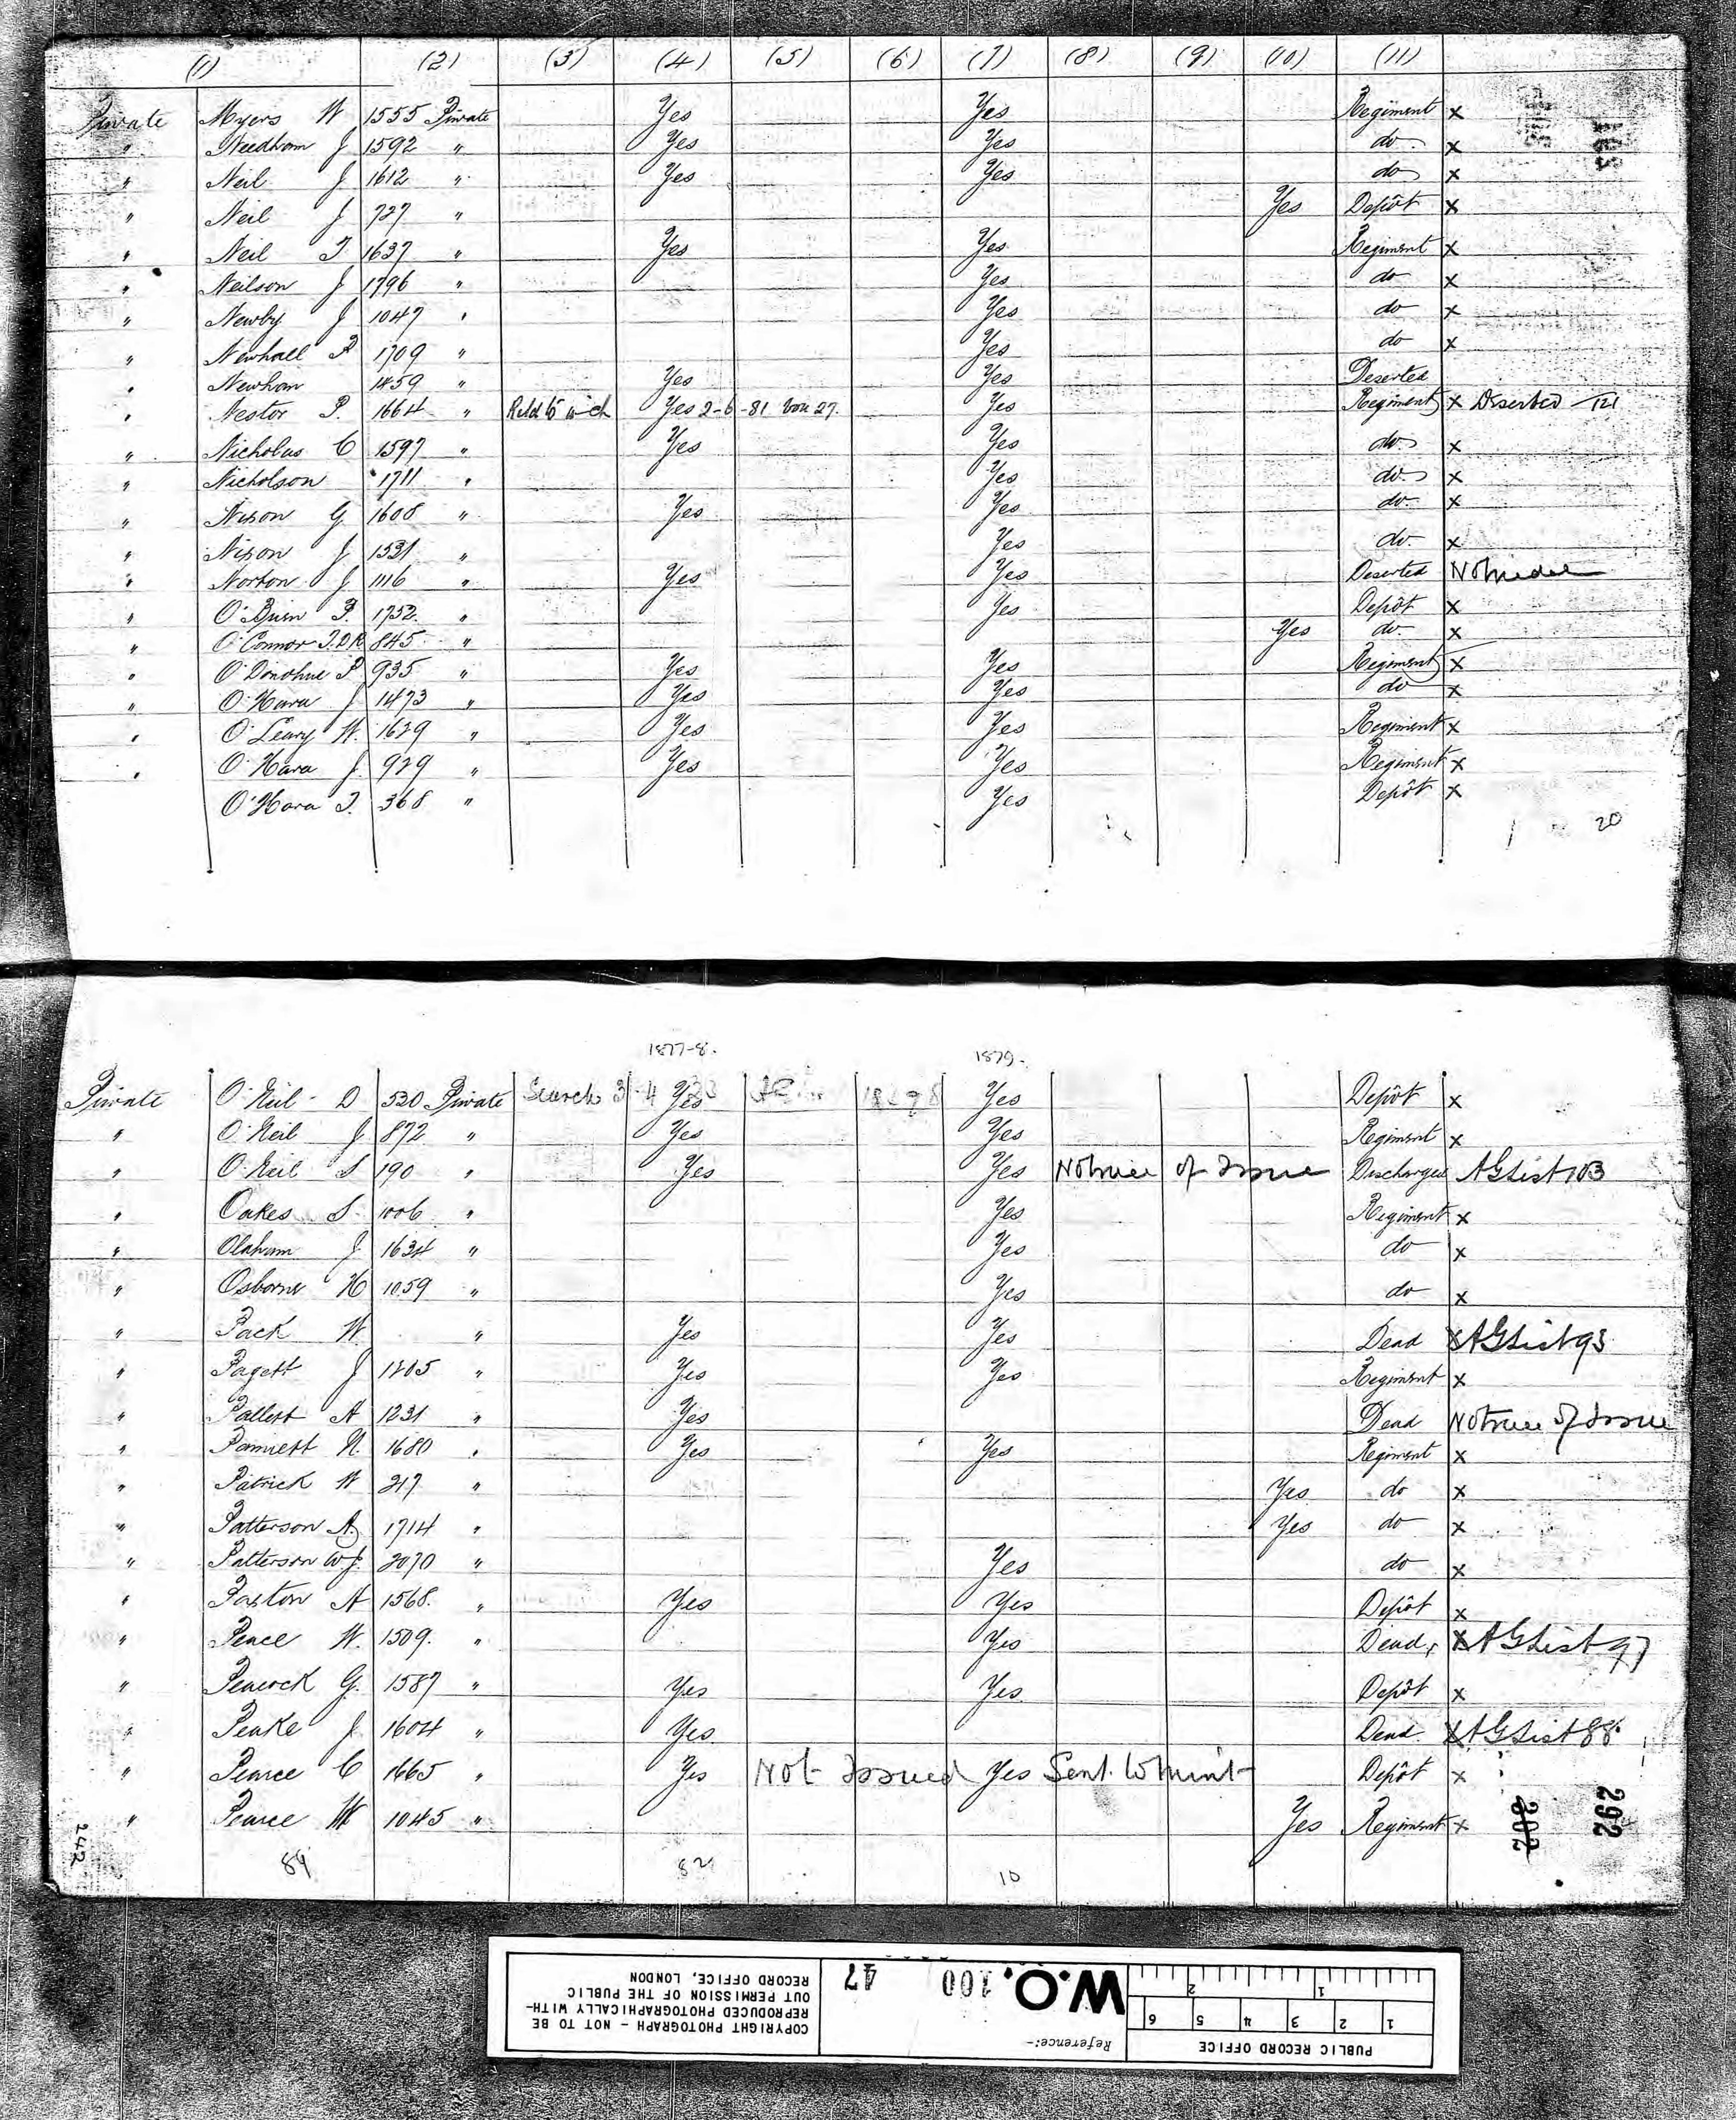 (1) (2) (3) (4) (5) (6) (7) (8) (9) (10) (11)
Private Myers W 1555 Private Yes Yes Regiment x
" Needham J 1592 " Yes Yes do x
" Neil J 1612 " Yes Yes do x
" Neil J 727 " Yes Depôt x
" Neil T 1637 " Yes Yes Regiment x
" Neilson J 1796 " Yes do x
" Newby J 1047 " Yes do x
" Newhall P 1709 " Yes do x
" Newham 1459 " Yes Yes Deserted
" Nestor P. 1664 " Yes 2-6-81 27. Yes Regiment x Deserted 121
" Nicholas C 1597 " Yes Yes do x
" Nicholson 1711 " Yes do. x
" Nixon G 1608 " Yes Yes do. x
" Nixon J 1531 " Yes do. x
" Norton J 1116 " Yes Yes Deserted
" O'Brien P. 1752 " Yes Depôt x
" O'Connor 845 " Yes do. x
" O'Donohue P 935 " Yes Yes Regiment x
" O'Hara J 1473 " Yes Yes do x
" O'Leary W. 1629 " Yes Yes Regiment x
" O'Hara J 929 " Yes Yes Regiment x
O'Hara T. 368 " Yes Depôt x
20
1877-8. 1879.
Private O'Neil D 530 Private Search Yes Yes Depôt x
" O'Neil J 872 " Yes Yes Regiment x
" O'Neil S 190 " Yes Yes No trace of Issue Discharged AG List 103
" Oakes S. 1006 " Yes Regiment x
" Olaham J 1634 " Yes do x
" Osborne H 1059 " Yes do x
" Pack W " Yes Yes Dead x AG List 93
" Pagett J 1805 " Yes Yes Regiment x
" Pallett A 1231 " Yes Dead No trace of Issue
" N. 1680 " Yes Yes Regiment x
" Patrick W 217 " Yes do x
" Patterson A 1714 " Yes do x
" Patterson W J. 2070 " Yes do x
" Paxton A 1568. " Yes Yes Depôt x
" Peace W. 1509. " Yes Dead x AG List 97
" Peacock G. 1587 " Yes Yes Depôt x
" Peake J 1604 " Yes Dead. x AG List 88
" Pearce C 1665 " Yes Not Issued Yes Sent to Mint Depôt x
" Pearce W 1045 " Yes Regiment x
242 84 82 10 302 292
PUBLIC RECORD OFFICE
1 2 3 4 5 6
1 2
Reference:-
W.O. 100 47
COPYRIGHT PHOTOGRAPH - NOT TO BE
REPRODUCED PHOTOGRAPHICALLY WITH-
OUT PERMISSION OF THE PUBLIC
RECORD OFFICE, LONDON